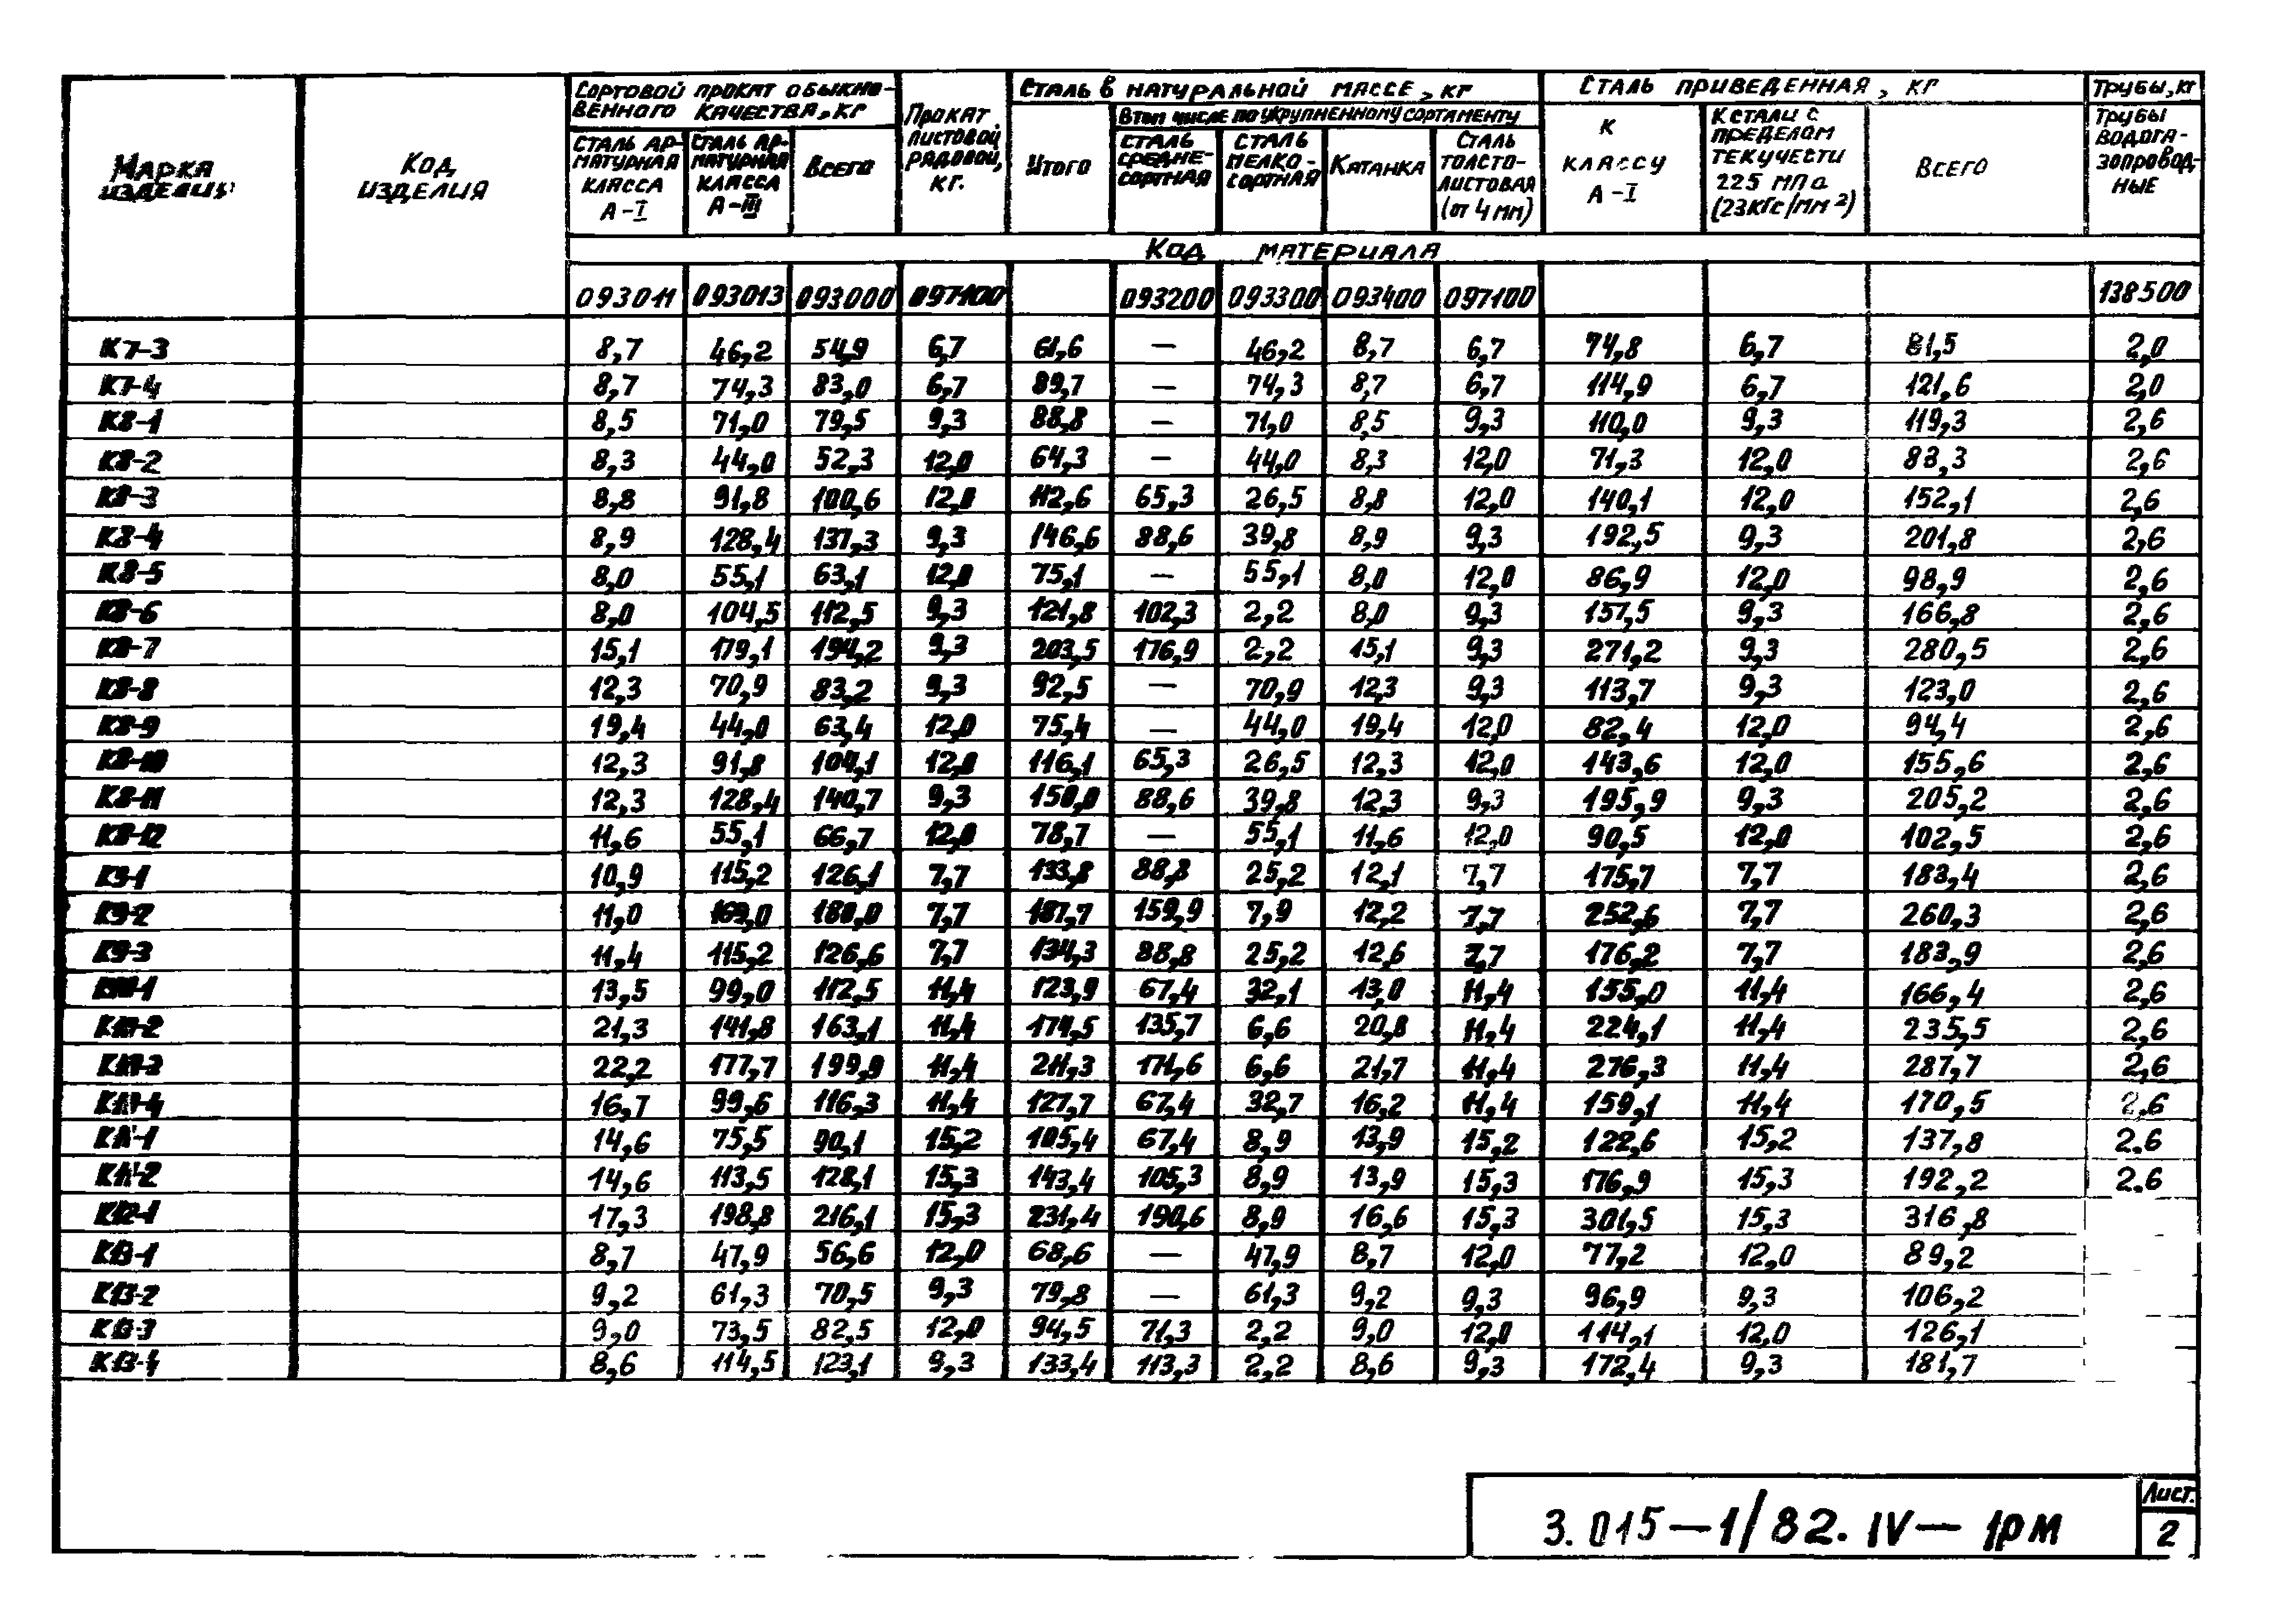 Марка изделия
Код изделия
Сортовой прокат обыкновенного качества, кг
Прокат листовой рядовой, кг.
Сталь в натуральной массе, кг
Сталь приведенная, кг
Трубы, кг
Сталь арматурная класса А-I
Сталь арматурная класса А-III
Всего
Итого
В том числе по укрупненному сортаменту
Сталь среднесортная
Сталь мелкосортная
Катанка
Сталь толстолистовая (от 4 мм)
К классу А-I
К стали с пределом текучести 225 МПа (23кгс/мм²)
Всего
Трубы водогазопроводные
Код материала
093011 093013 093000 097100 093200 093300 093400 097100 138500
К7-3 8,7 46,2 54,9 6,7 61,6 — 46,2 8,7 6,7 74,8 6,7 81,5 2,0
К7-4 8,7 74,3 83,0 6,7 89,7 — 74,3 8,7 6,7 114,9 6,7 121,6 2,0
К8-1 8,5 71,0 79,5 9,3 88,8 — 71,0 8,5 9,3 110,0 9,3 119,3 2,6
К8-2 8,3 44,0 52,3 12,0 64,3 — 44,0 8,3 12,0 71,3 12,0 83,3 2,6
К8-3 8,8 91,8 100,6 12,0 112,6 65,3 26,5 8,8 12,0 140,1 12,0 152,1 2,6
К8-4 8,9 128,4 137,3 9,3 146,6 88,6 39,8 8,9 9,3 192,5 9,3 201,8 2,6
К8-5 8,0 55,1 63,1 12,0 75,1 — 55,1 8,0 12,0 86,9 12,0 98,9 2,6
К8-6 8,0 104,5 112,5 9,3 121,8 102,3 2,2 8,0 9,3 157,5 9,3 166,8 2,6
К8-7 15,1 179,1 194,2 9,3 203,5 176,9 2,2 15,1 9,3 271,2 9,3 280,5 2,6
К8-8 12,3 70,9 83,2 9,3 92,5 — 70,9 12,3 9,3 113,7 9,3 123,0 2,6
К8-9 19,4 44,0 63,4 12,0 75,4 — 44,0 19,4 12,0 82,4 12,0 94,4 2,6
К8-10 12,3 91,8 104,1 12,0 116,1 65,3 26,5 12,3 12,0 143,6 12,0 155,6 2,6
К8-11 12,3 128,4 140,7 9,3 150,0 88,6 39,8 12,3 9,3 195,9 9,3 205,2 2,6
К8-12 11,6 55,1 66,7 12,0 78,7 — 55,1 11,6 12,0 90,5 12,0 102,5 2,6
К9-1 10,9 115,2 126,1 7,7 133,8 88,8 25,2 12,1 7,7 175,7 7,7 183,4 2,6
К9-2 11,0 169,0 180,0 7,7 187,7 159,9 7,9 12,2 7,7 252,6 7,7 260,3 2,6
К9-3 11,4 115,2 126,6 7,7 134,3 88,8 25,2 12,6 7,7 176,2 7,7 183,9 2,6
К10-1 13,5 99,0 112,5 11,4 123,9 67,4 32,1 13,0 11,4 155,0 11,4 166,4 2,6
К10-2 21,3 141,8 163,1 11,4 174,5 135,7 6,6 20,8 11,4 224,1 11,4 235,5 2,6
К10-3 22,2 177,7 199,9 11,4 211,3 171,6 6,6 21,7 11,4 276,3 11,4 287,7 2,6
К10-4 16,7 99,6 116,3 11,4 127,7 67,4 32,7 16,2 11,4 159,1 11,4 170,5 2.6
К11-1 14,6 75,5 90,1 15,2 105,4 67,4 8,9 13,9 15,2 122,6 15,2 137,8 2.6
К11-2 14,6 113,5 128,1 15,3 143,4 105,3 8,9 13,9 15,3 176,9 15,3 192,2 2.6
К12-1 17,3 198,8 216,1 15,3 231,4 190,6 8,9 16,6 15,3 301,5 15,3 316,8
К13-1 8,7 47,9 56,6 12,0 68,6 — 47,9 8,7 12,0 77,2 12,0 89,2
К13-2 9,2 61,3 70,5 9,3 79,8 — 61,3 9,2 9,3 96,9 9,3 106,2
К13-3 9,0 73,5 82,5 12,0 94,5 71,3 2,2 9,0 12,0 114,1 12,0 126,1
К13-4 8,6 114,5 123,1 9,3 133,4 113,3 2,2 8,6 9,3 172,4 9,3 181,7
3.015-1/82.IV-1рм
Лист.
2